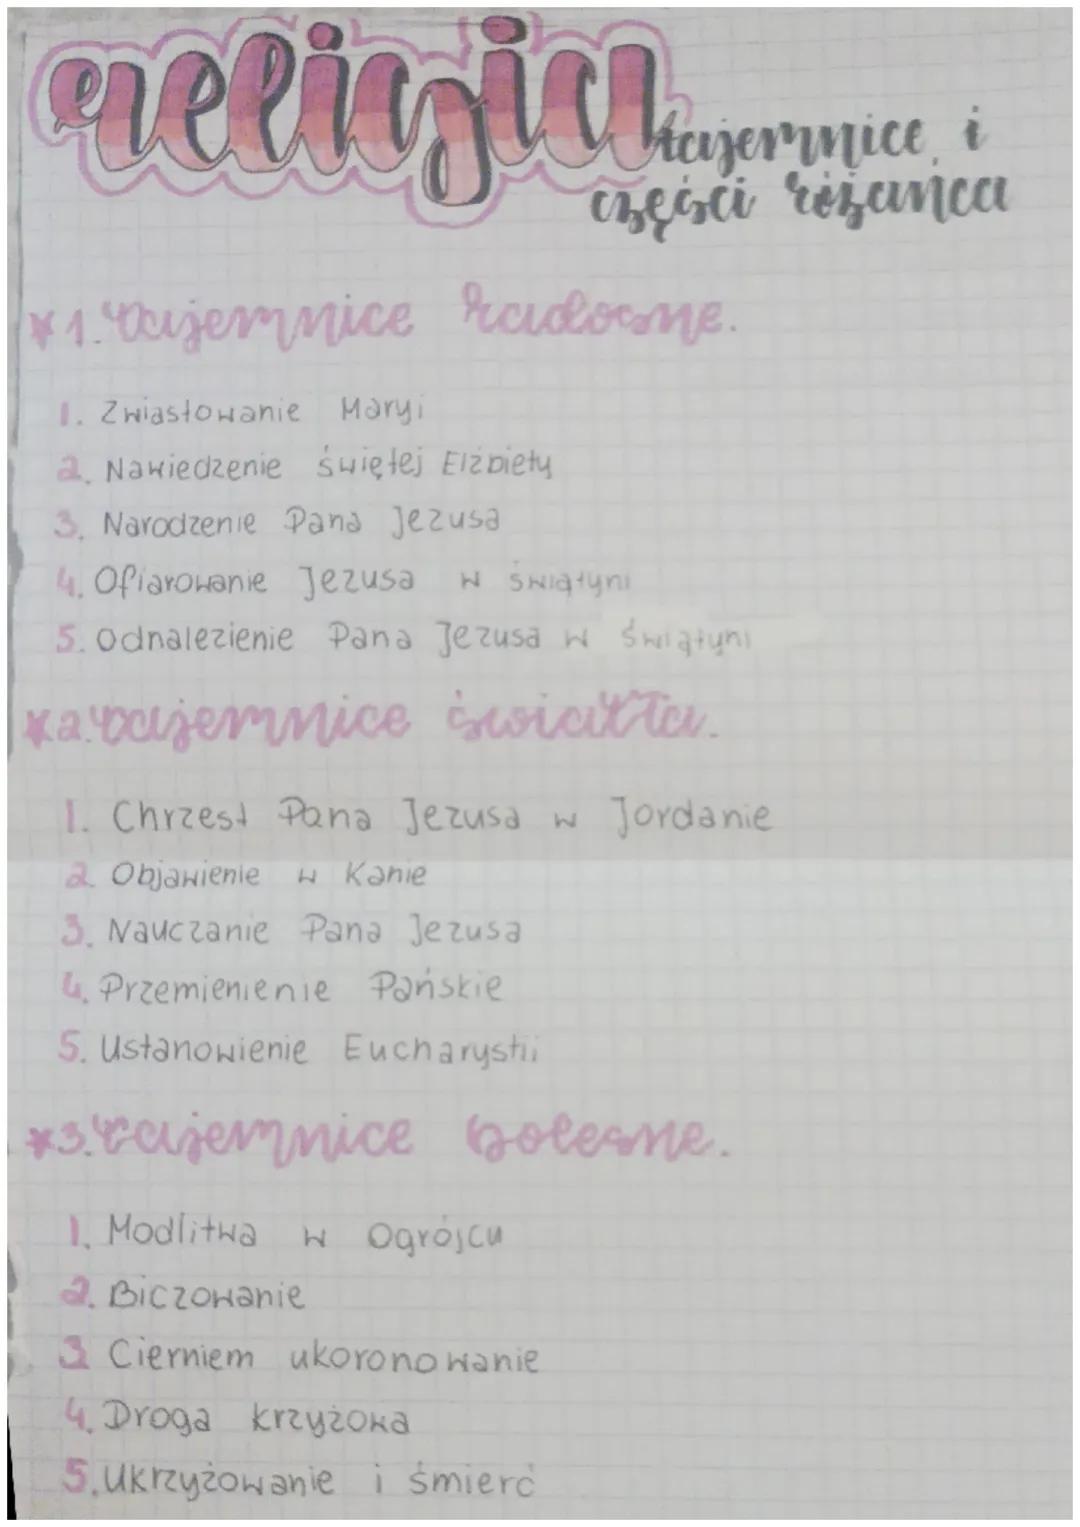 religia
tajemnice i
części różańca
*1. tajemnice radosne.
1. Zwiastowanie Maryi
2. Nawiedzenie świętej Elżbiety
3. Narodzenie Pana Jezusa
4. Ofiarowanie Jezusa w świątyni
5. Odnalezienie Pana Jezusa w świątyni
*2. tajemnice światła.
1. Chrzest Pana Jezusa w Jordanie
2. Objawienie w Kanie
3. Nauczanie Pana Jezusa
4. Przemienienie Pańskie
5. Ustanowienie Eucharystii
*3. tajemnice bolesne.
1. Modlitwa w Ogrójcu
2. Biczowanie
3 Cierniem ukoronowanie
4. Droga krzyżowa
5. Ukrzyżowanie i śmierć